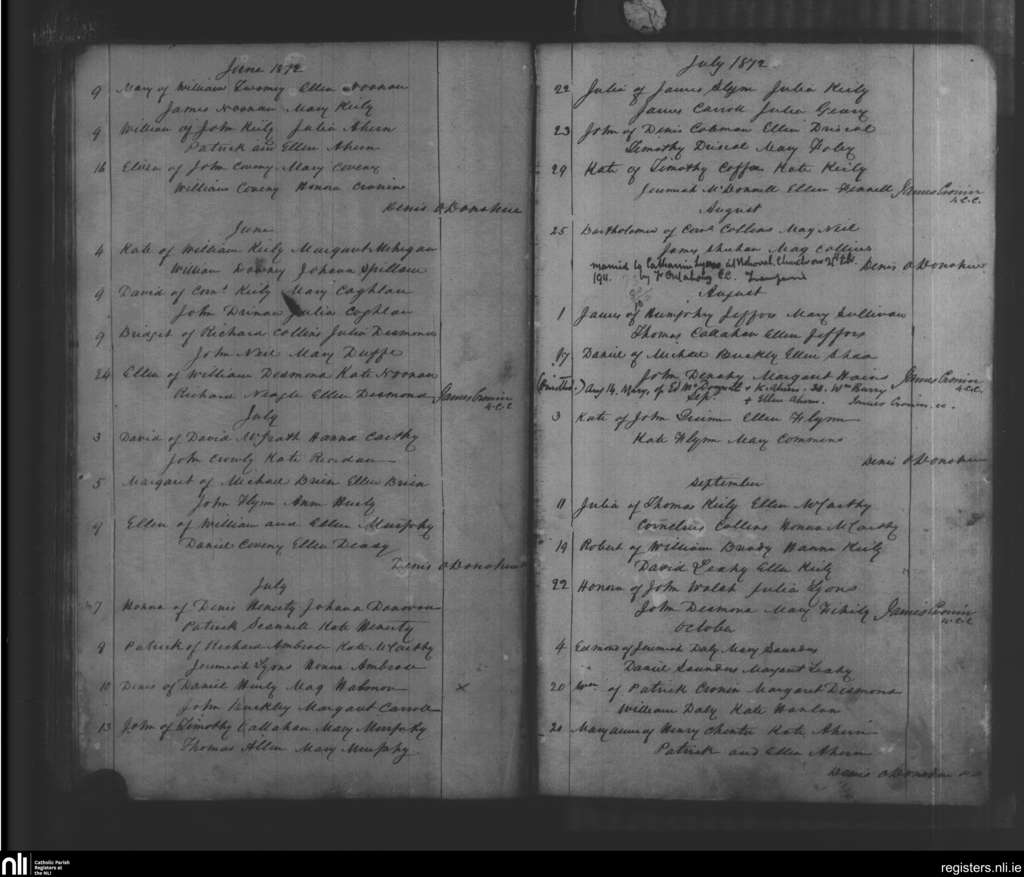 June 1872
9 Mary of William Twomey Ellen Noonan
James Noonan Mary Kiely
9 William of John Kiely Julia Ahern
Patrick and Ellen Ahern
16 Ellen of John Coveny Mary Coveny
William Coveny Honora Cronin
Denis O'Donohue
June
4 Kate of William Kiely Margaret Mehegan
William Johana Spillane
9 David of Corns. Kiely Mary Coghlan
John Drinan Julia Coghlan
9 Bridget of Richard Collins Julia Desmond
John Neil Mary Duffe
24 Ellen of William Desmond Kate Noonan
Richard Neagle Ellen Desmond James Cronin
R.C.C.
July
3 David of David McGrath Hanna Carthy
John Crowly Kate Reordan
5 Margaret of Michael Brien Ellen Brien
John Flynn Ann
9 Ellen of William and Ellen Murphy
Daniel Coveny Ellen Deasy
Denis O'Donohue
July
7 Honna of Denis Henerty Johana Donovan
Patrick Scannell Kate Henerty
9 Patrick of Richard Ambrose Kate McCarthy
Jeremiah Lyons Honna Ambrose
10 Denis of Daniel Mag ×
John Buckley Margaret Carroll
13 John of Timothy Callahan Mary Murphy
Thomas Allen Mary Murphy
July 1872
22 Julia of James Flynn Julia Kiely
James Carroll Julia Geary
23 John of Denis Coleman Ellen Driscol
Timothy Driscol Mary Foley
29 Kate of Timothy Coffee Kate Kiely
Jeremiah McDonnell Ellen James Cronin
R.C.C.
August
25 Bartholomew of Corns. Collins Mag Neil
James Sheehan Mag Collins
married by Catherine Lyons at
1911. by Fr O'Mahony C.C. Denis O'Donohue
August
1 James of Humphry Jeffors Mary Sullivan
Thomas Callahan Ellen Jeffors
17 Daniel of Michael Buckley Ellen Shea
John Denahy Margaret Hains James Cronin
R.C.C.
(Omitted.) Aug 14. Mary, of Ed + K. Ahern. Sp. Wm Barry
+ Ellen Ahern. James Cronin. cc.
Sep.
3 Kate of John Ellen Flynn
Kate Flynn Mary Commins
Denis O'Donohue
September
11 Julia of Thomas Kiely Ellen McCarthy
Cornelius Collins Honna McCarthy
14 Robert of William Brady Hanna Kiely
David Leahy Ellen Kiely
22 Honora of John Walsh Julia Lyons
John Desmond Mary James Cronin
R.C.C.
October
4 Edmond of Jeremiah Daly Mary Saunders
Daniel Saunders Margaret Leahy
20 Wm of Patrick Cronin Margaret Desmond
William Daly Kate Hanlon
20 Maryanne of Henry Kate Ahern
Patrick and Ellen Ahern
Denis O'Donohue
nli Catholic Parish
Registers at
the NLI
registers.nli.ie